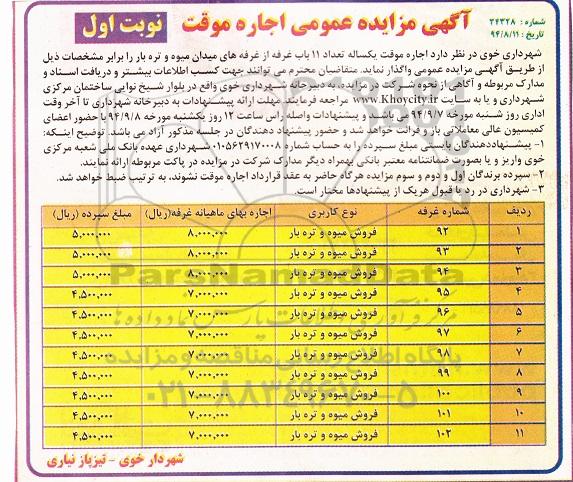 شماره : ۲۴۳۲۸
تاریخ : ۹۴/۸/۱۱
آگهی مزایده عمومی اجاره موقت
نوبت اول
شهرداری خوی در نظر دارد اجاره موقت یکساله تعداد ۱۱ باب غرفه از غرفه های میدان میوه و تره بار را برابر مشخصات ذیل
از طریق آگهی مزایده عمومی واگذار نماید. متقاضیان محترم می توانند جهت کسب اطلاعات بیشتر و دریافت اسناد و
مدارک مربوطه و آگاهی از نحوه شرکت در مزایده، به دبیرخانه شهرداری خوی واقع در بلوار شیخ نوایی ساختمان مرکزی
شهرداری و یا به سایت www.Khoycity.ir مراجعه فرمایند. مهلت ارائه پیشنهادات به دبیرخانه شهرداری تا آخر وقت
اداری روز شنبه مورخه ۹۴/۹/۷ می باشد و پیشنهادات واصله راس ساعت ۱۲ روز یکشنبه مورخه ۹۴/۹/۸ با حضور اعضای
کمیسیون عالی معاملاتی باز و قرائت خواهد شد و حضور پیشنهاد دهندگان در جلسه مذکور آزاد می باشد. توضیح اینکه:
۱- پیشنهاددهندگان بایستی مبلغ سپرده را به حساب شماره ۰۱۰۵۶۲۹۱۷۰۰۸ شهرداری عهده بانک ملی شعبه مرکزی
خوی واریز و یا بصورت ضمانتنامه معتبر بانکی بهمراه دیگر مدارک شرکت در مزایده در پاکت مربوطه ارائه نمایند.
۲- سپرده برندگان اول و دوم و سوم مزایده هرگاه حاضر به عقد قرارداد اجاره موقت نشوند، به ترتیب ضبط خواهد شد.
۳- شهرداری در رد یا قبول هریک از پیشنهادها مختار است.
ردیف شماره غرفه نوع کاربری اجاره بهای ماهیانه غرفه(ریال) مبلغ سپرده (ریال)
۱ ۹۲ فروش میوه و تره بار ۸,۰۰۰,۰۰۰ ۵,۰۰۰,۰۰۰
۲ ۹۳ فروش میوه و تره بار ۸,۰۰۰,۰۰۰ ۵,۰۰۰,۰۰۰
۳ ۹۴ فروش میوه و تره بار ۸,۰۰۰,۰۰۰ ۵,۰۰۰,۰۰۰
۴ ۹۵ فروش میوه و تره بار ۷,۰۰۰,۰۰۰ ۴,۵۰۰,۰۰۰
۵ ۹۶ فروش میوه و تره بار ۷,۰۰۰,۰۰۰ ۴,۵۰۰,۰۰۰
۶ ۹۷ فروش میوه و تره بار ۷,۰۰۰,۰۰۰ ۴,۵۰۰,۰۰۰
۷ ۹۸ فروش میوه و تره بار ۷,۰۰۰,۰۰۰ ۴,۵۰۰,۰۰۰
۸ ۹۹ فروش میوه و تره بار ۷,۰۰۰,۰۰۰ ۴,۵۰۰,۰۰۰
۹ ۱۰۰ فروش میوه و تره بار ۷,۰۰۰,۰۰۰ ۴,۵۰۰,۰۰۰
۱۰ ۱۰۱ فروش میوه و تره بار ۷,۰۰۰,۰۰۰ ۴,۵۰۰,۰۰۰
۱۱ ۱۰۲ فروش میوه و تره بار ۷,۰۰۰,۰۰۰ ۴,۵۰۰,۰۰۰
شهردار خوی - تیزپاز نیاری